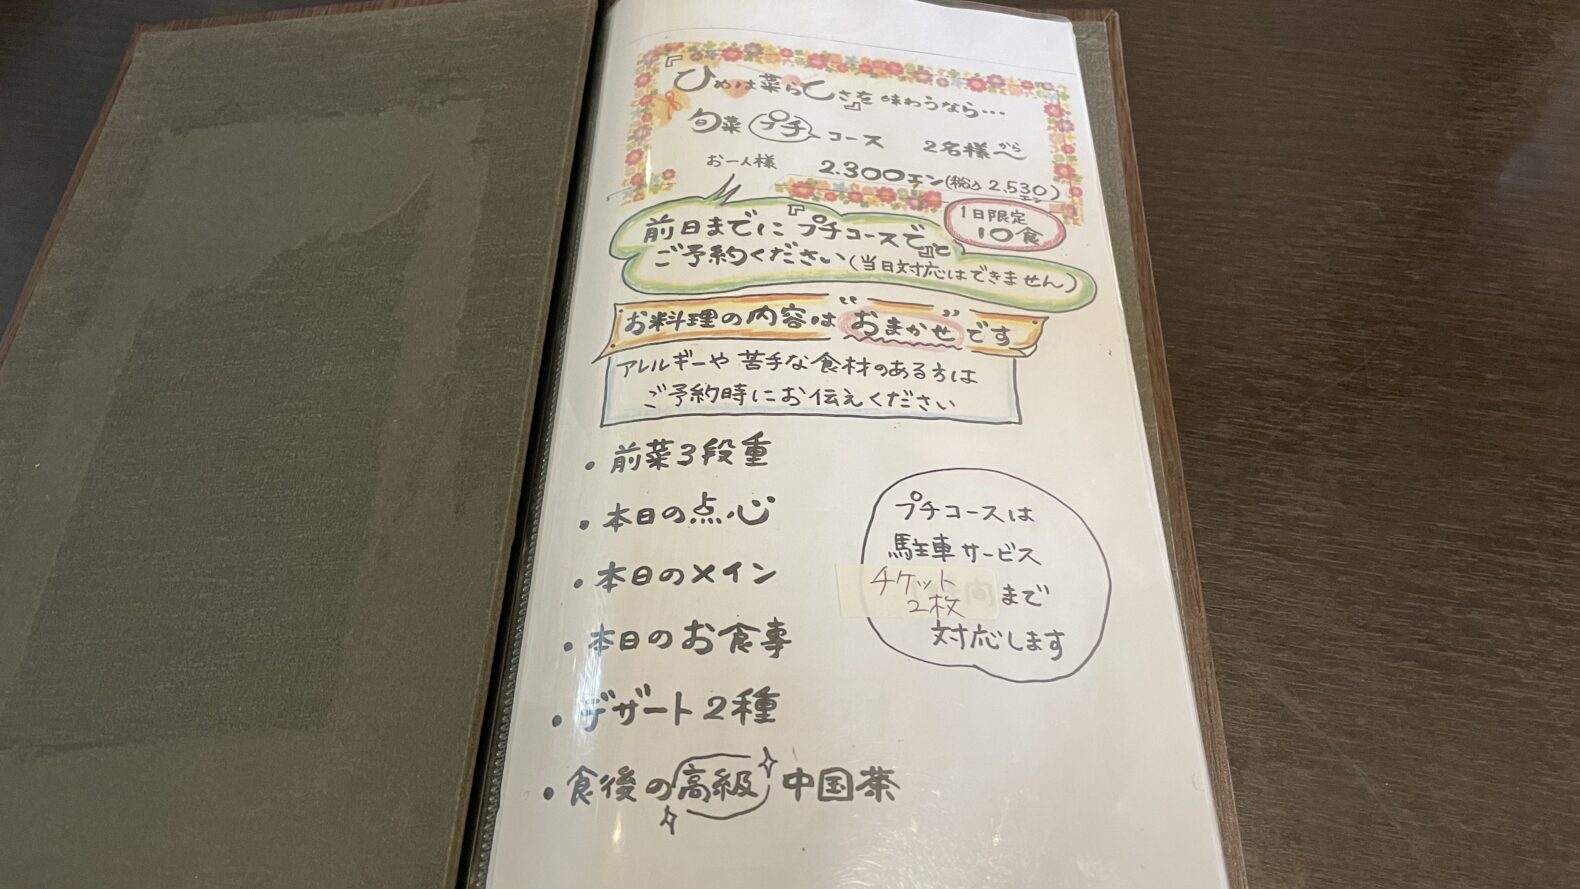 『ひめは菜らしさを』味わうなら…
旬菜 プチ コース 2名様から
お一人様 2.300エン(税込 2,530エン)
1日限定
10食
前日までに『プチコースで』と
ご予約ください(当日対応はできません)
お料理の内容は“おまかせ”です
アレルギーや苦手な食材のある方は
ご予約時にお伝えください
・前菜3段重
・本日の点心
・本日のメイン
・本日のお食事
・デザート2種
・食後の高級中国茶
プチコースは
駐車サービス
チケット
2枚 まで
対応します